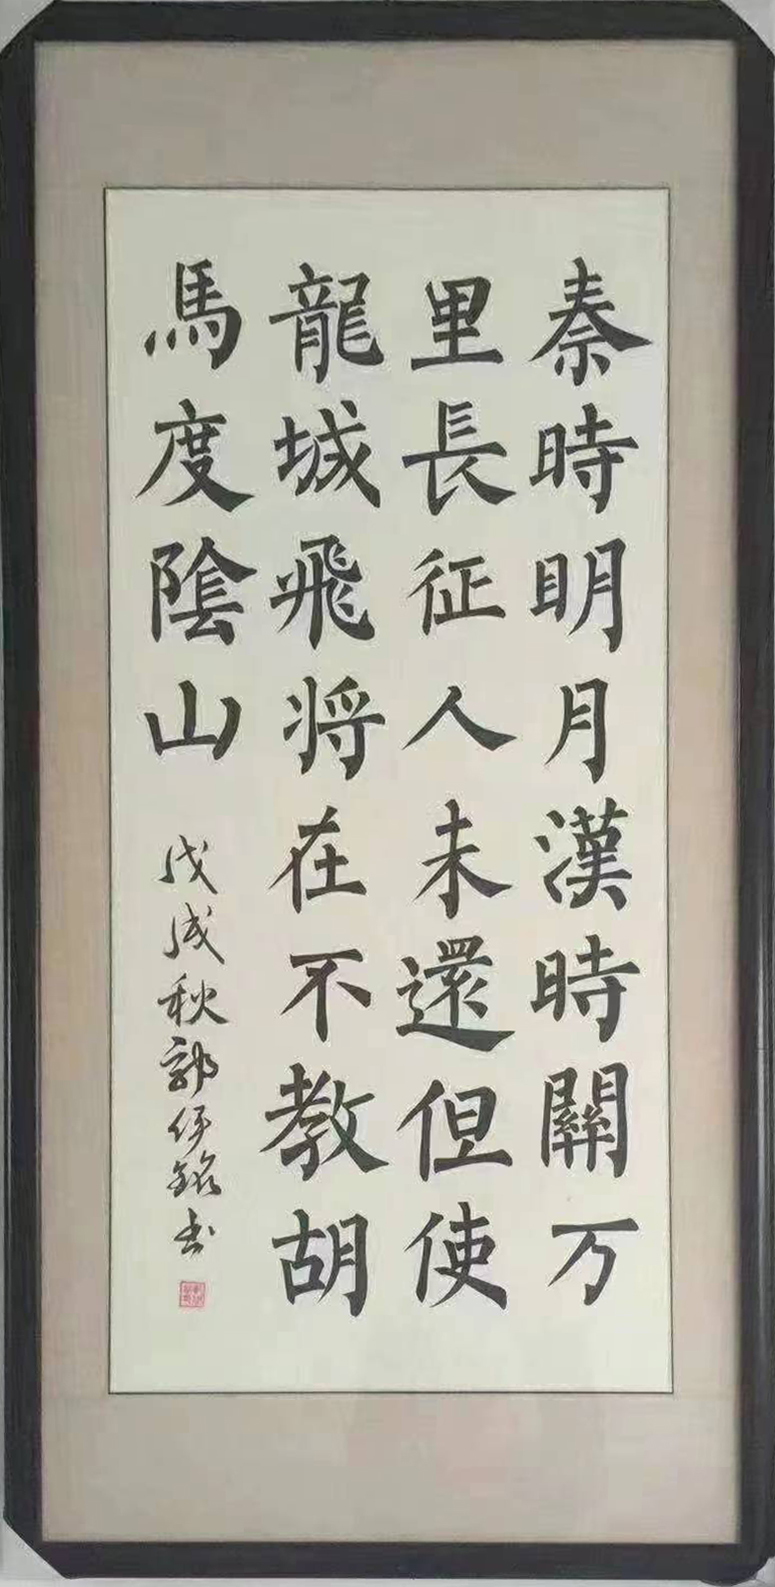 秦時明月漢時關万
里長征人未還但使
龍城飛将在不教胡
馬度陰山
戊戌秋郭伊銘书